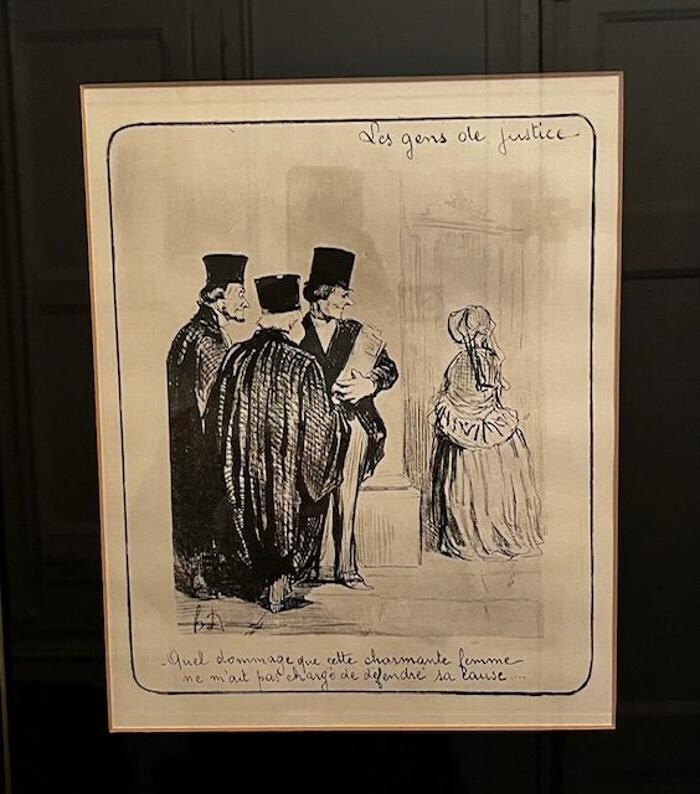 Les gens de justice
h.D.
- Quel dommage que cette charmante femme
ne m'ait pas chargé de défendre sa cause....